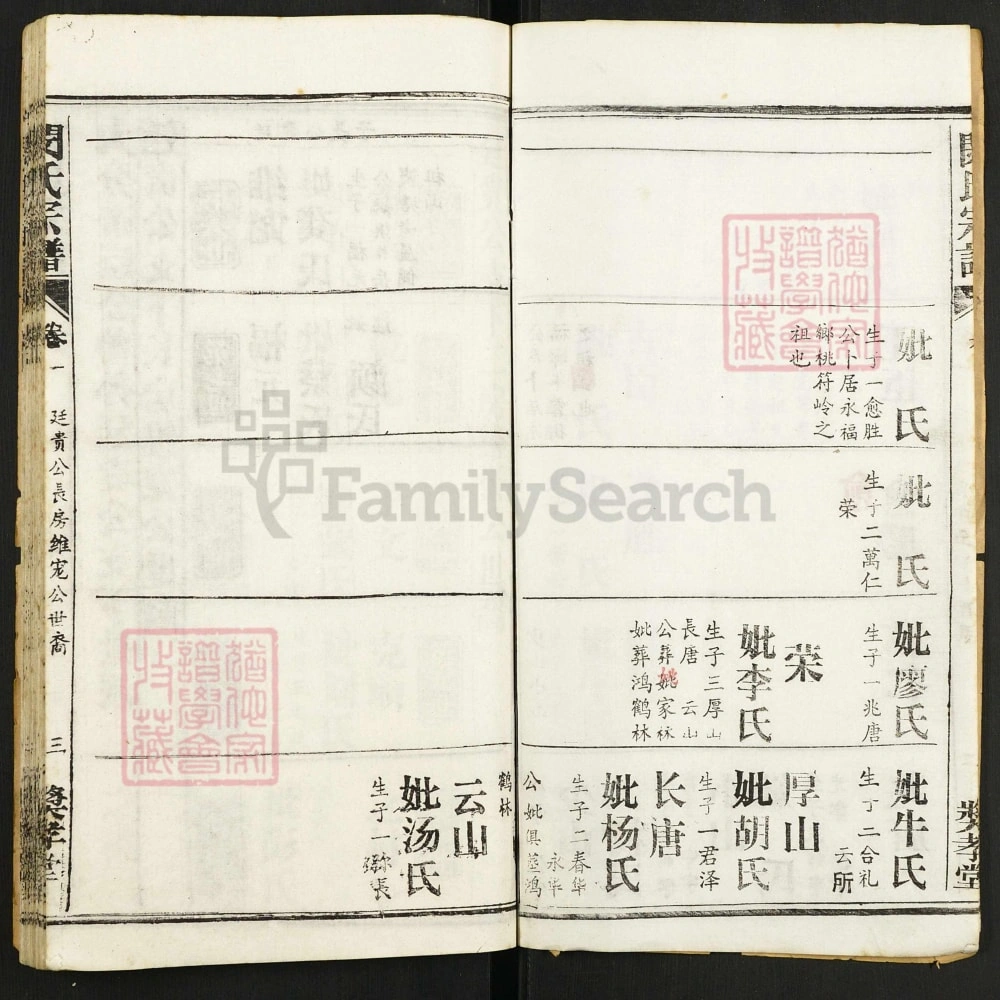 妣氏
生子一愈胜
公卜居永福
鄉桃符岭之
祖也
妣氏
生子二萬仁
荣
妣廖氏
生子一兆唐
荣
妣李氏
生子三厚山
長唐 云山
公葬姚家林
妣葬鸿鹤林
妣牛氏
生丁二合礼
云所
厚山
妣胡氏
生子一君泽
长唐
妣杨氏
生子二春华
永华
公妣俱塟鸿
鹤林
云山
妣汤氏
生子一弥長
閔氏宗譜
卷一
廷贵公長房维宠公世裔
三
猶他家譜學會收藏
猶他家譜學會收藏
FamilySearch